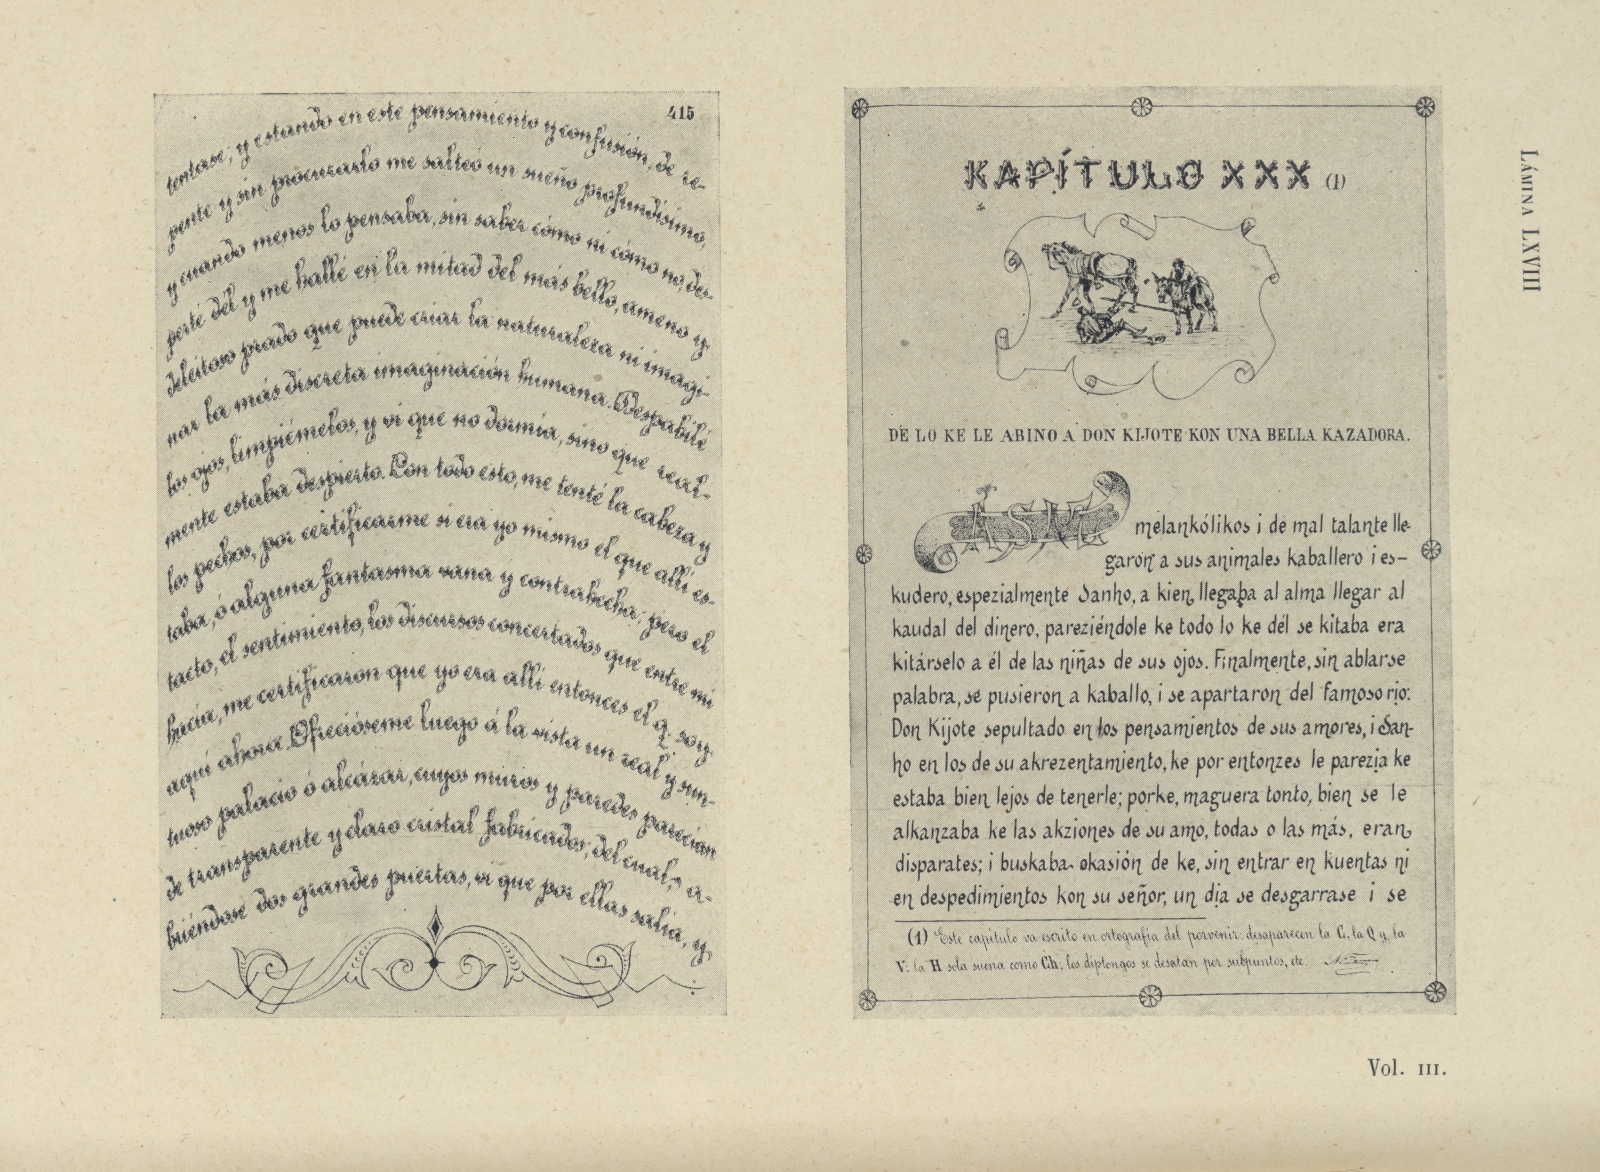 415
tentase; y estando en este pensamiento y confusión, de re-
pente y sin procurarlo me salteó un sueño profundísimo,
y cuando menos lo pensaba, sin saber cómo ni cómo no, des-
perté dél y me hallé en la mitad del más bello, ameno y
deleitoso prado que puede criar la naturaleza ni imagi-
nar la más discreta imaginación humana. Despabilé
los ojos, limpiémelos, y vi que no dormía, sino que real-
mente estaba despierto. Con todo esto, me tenté la cabeza y
los pechos, por certificarme si era yo mismo el que allí es-
taba, ó alguna fantasma vana y contrahecha; pero el
tacto, el sentimiento, los discursos concertados que entre mi
hacía, me certificaron que yo era allí entonces el q. soy
aquí ahora. Ofrecióseme luego á la vista un real y sun-
tuoso palacio ó alcázar, cuyos muros y paredes parecían
de transparente y claro cristal fabricados; del cual, a-
briéndose dos grandes puertas, vi que por ellas salía, y,
KAPÍTULO XXX (1)
DE LO KE LE ABINO A DON KIJOTE KON UNA BELLA KAZADORA.
ASAZ melankólikos i de mal talante lle-
garon a sus animales kaballero i es-
kudero, espezialmente Sanho, a kien llegaba al alma llegar al
kaudal del dinero, pareziéndole ke todo lo ke dél se kitaba era
kitárselo a él de las niñas de sus ojos. Finalmente, sin ablarse
palabra, se pusieron a kaballo, i se apartaron del famoso rio:
Don Kijote sepultado en los pensamientos de sus amores, i San-
ho en los de su akrezentamiento, ke por entonzes le parezia ke
estaba bien lejos de tenerle; porke, maguera tonto, bien se le
alkanzaba ke las akziones de su amo, todas o las más, eran
disparates; i buskaba okasión de ke, sin entrar en kuentas ni
en despedimientos kon su señor, un dia se desgarrase i se
(1) Este capítulo va escrito en ortografía del porvenir: desaparecen la C, la Q y la
V: la H sola suena como Ch; los diptongos se desatan por subpuntos, etc.
LÁMINA LXVIII
Vol. III.